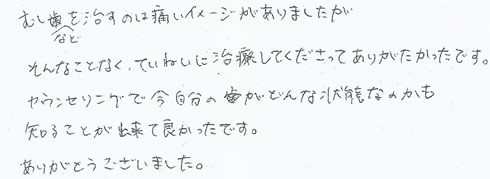 むし歯などを治すのは痛いイメージがありましたが
そんなことなく、ていねいに治療してくださってありがたかったです。
カウンセリングで今自分の歯がどんな状態なのかも
知ることが出来て良かったです。
ありがとうございました。